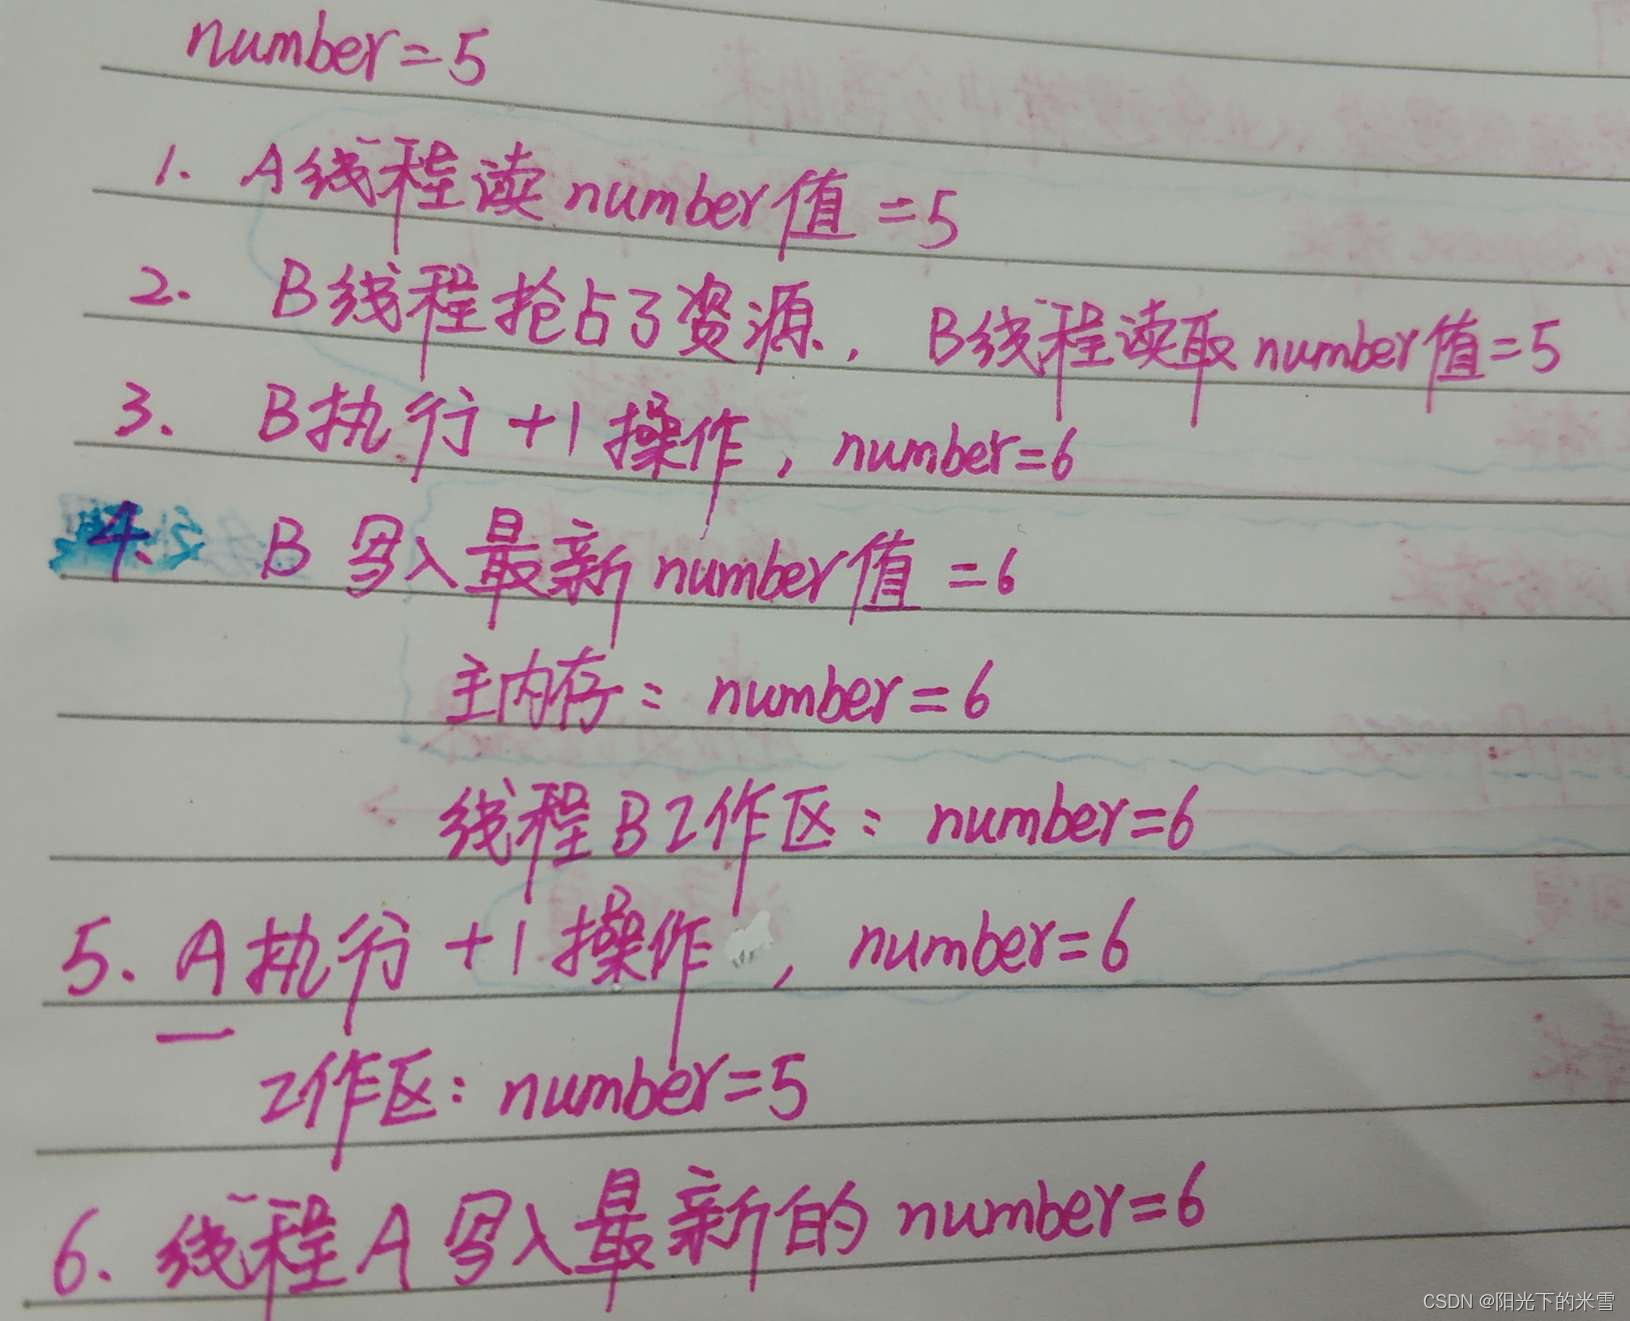 number=5
1. A线程读number值=5
2. B线程抢占了资源, B线程读取number值=5
3. B执行+1操作, number=6
4. B写入最新number值=6
主内存: number=6
线程B工作区: number=6
5. A执行+1操作, number=6
工作区: number=5
6. 线程A写入最新的number=6
CSDN @阳光下的米雪